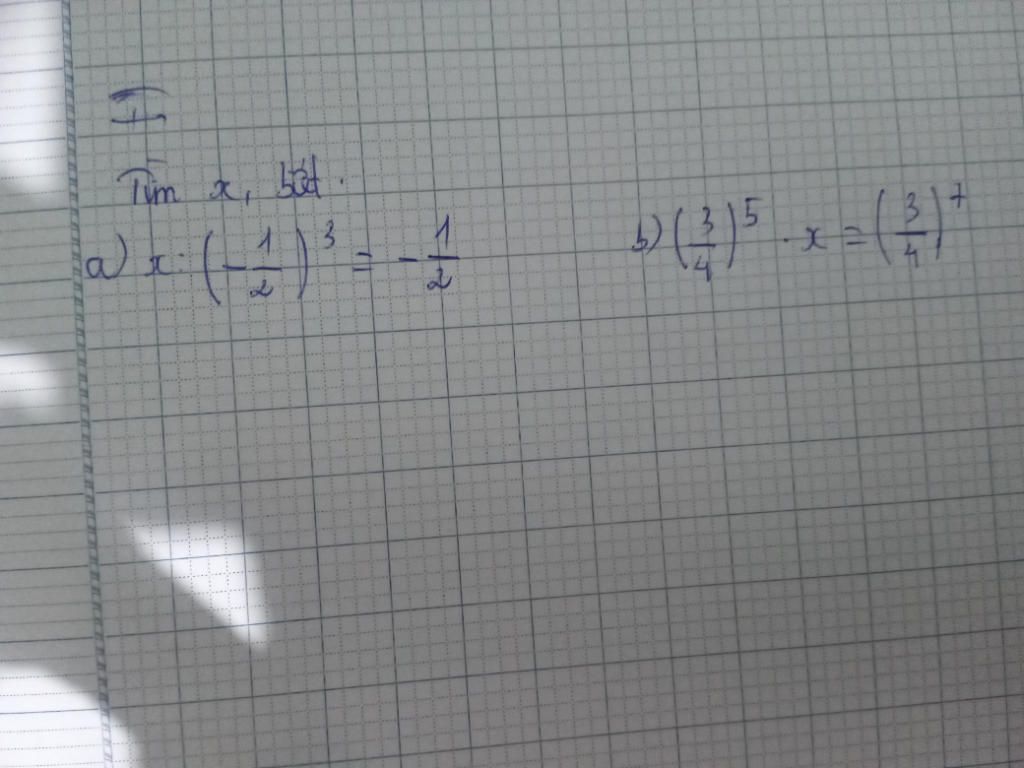 II
Tìm x, biết.
a) x : (-1/2)^3 = -1/2
b) (3/4)^5 . x = (3/4)^7